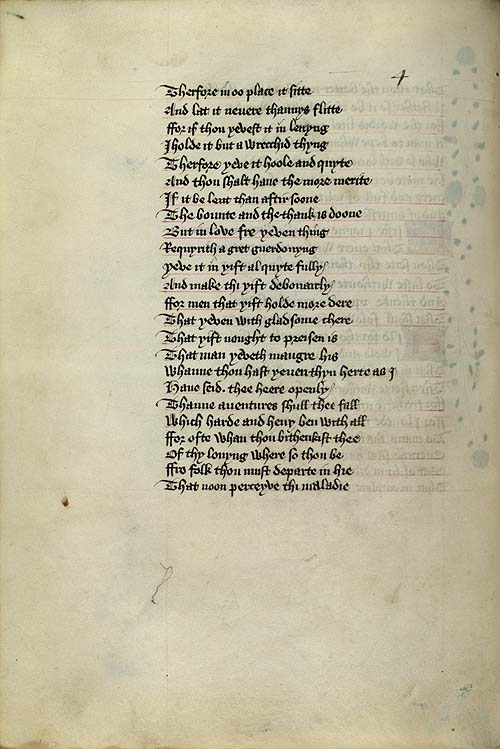 4
Therfore in oo place it sitte
And lat it nevere thannys flitte
ffor if thou yevest it in lenyng
I holde it but a wrecchid thyng
Therfore yeve it hoole and quyte
And thou shalt have the more merite
If it be lent than aftir soone
The bounte and the thank is doone
But in love fre yeven thing
Requyrith a gret guerdonyng
Yeve it in yift al quyte fully
And make thi yift debonairly
ffor men that yift holde more dere
That yeven with gladsome chere
That yift nought to preisen is
That man yeveth maugre his
Whanne thou hast yeven thyn herte as I
Have seid thee heere openly
Thanne aventures shull thee fall
Which harde and hevy ben with all
ffor ofte whan thou bithenkist thee
Of thy lovyng where so thou be
ffro folk thou must departe in hie
That noon perceyve thi maladie